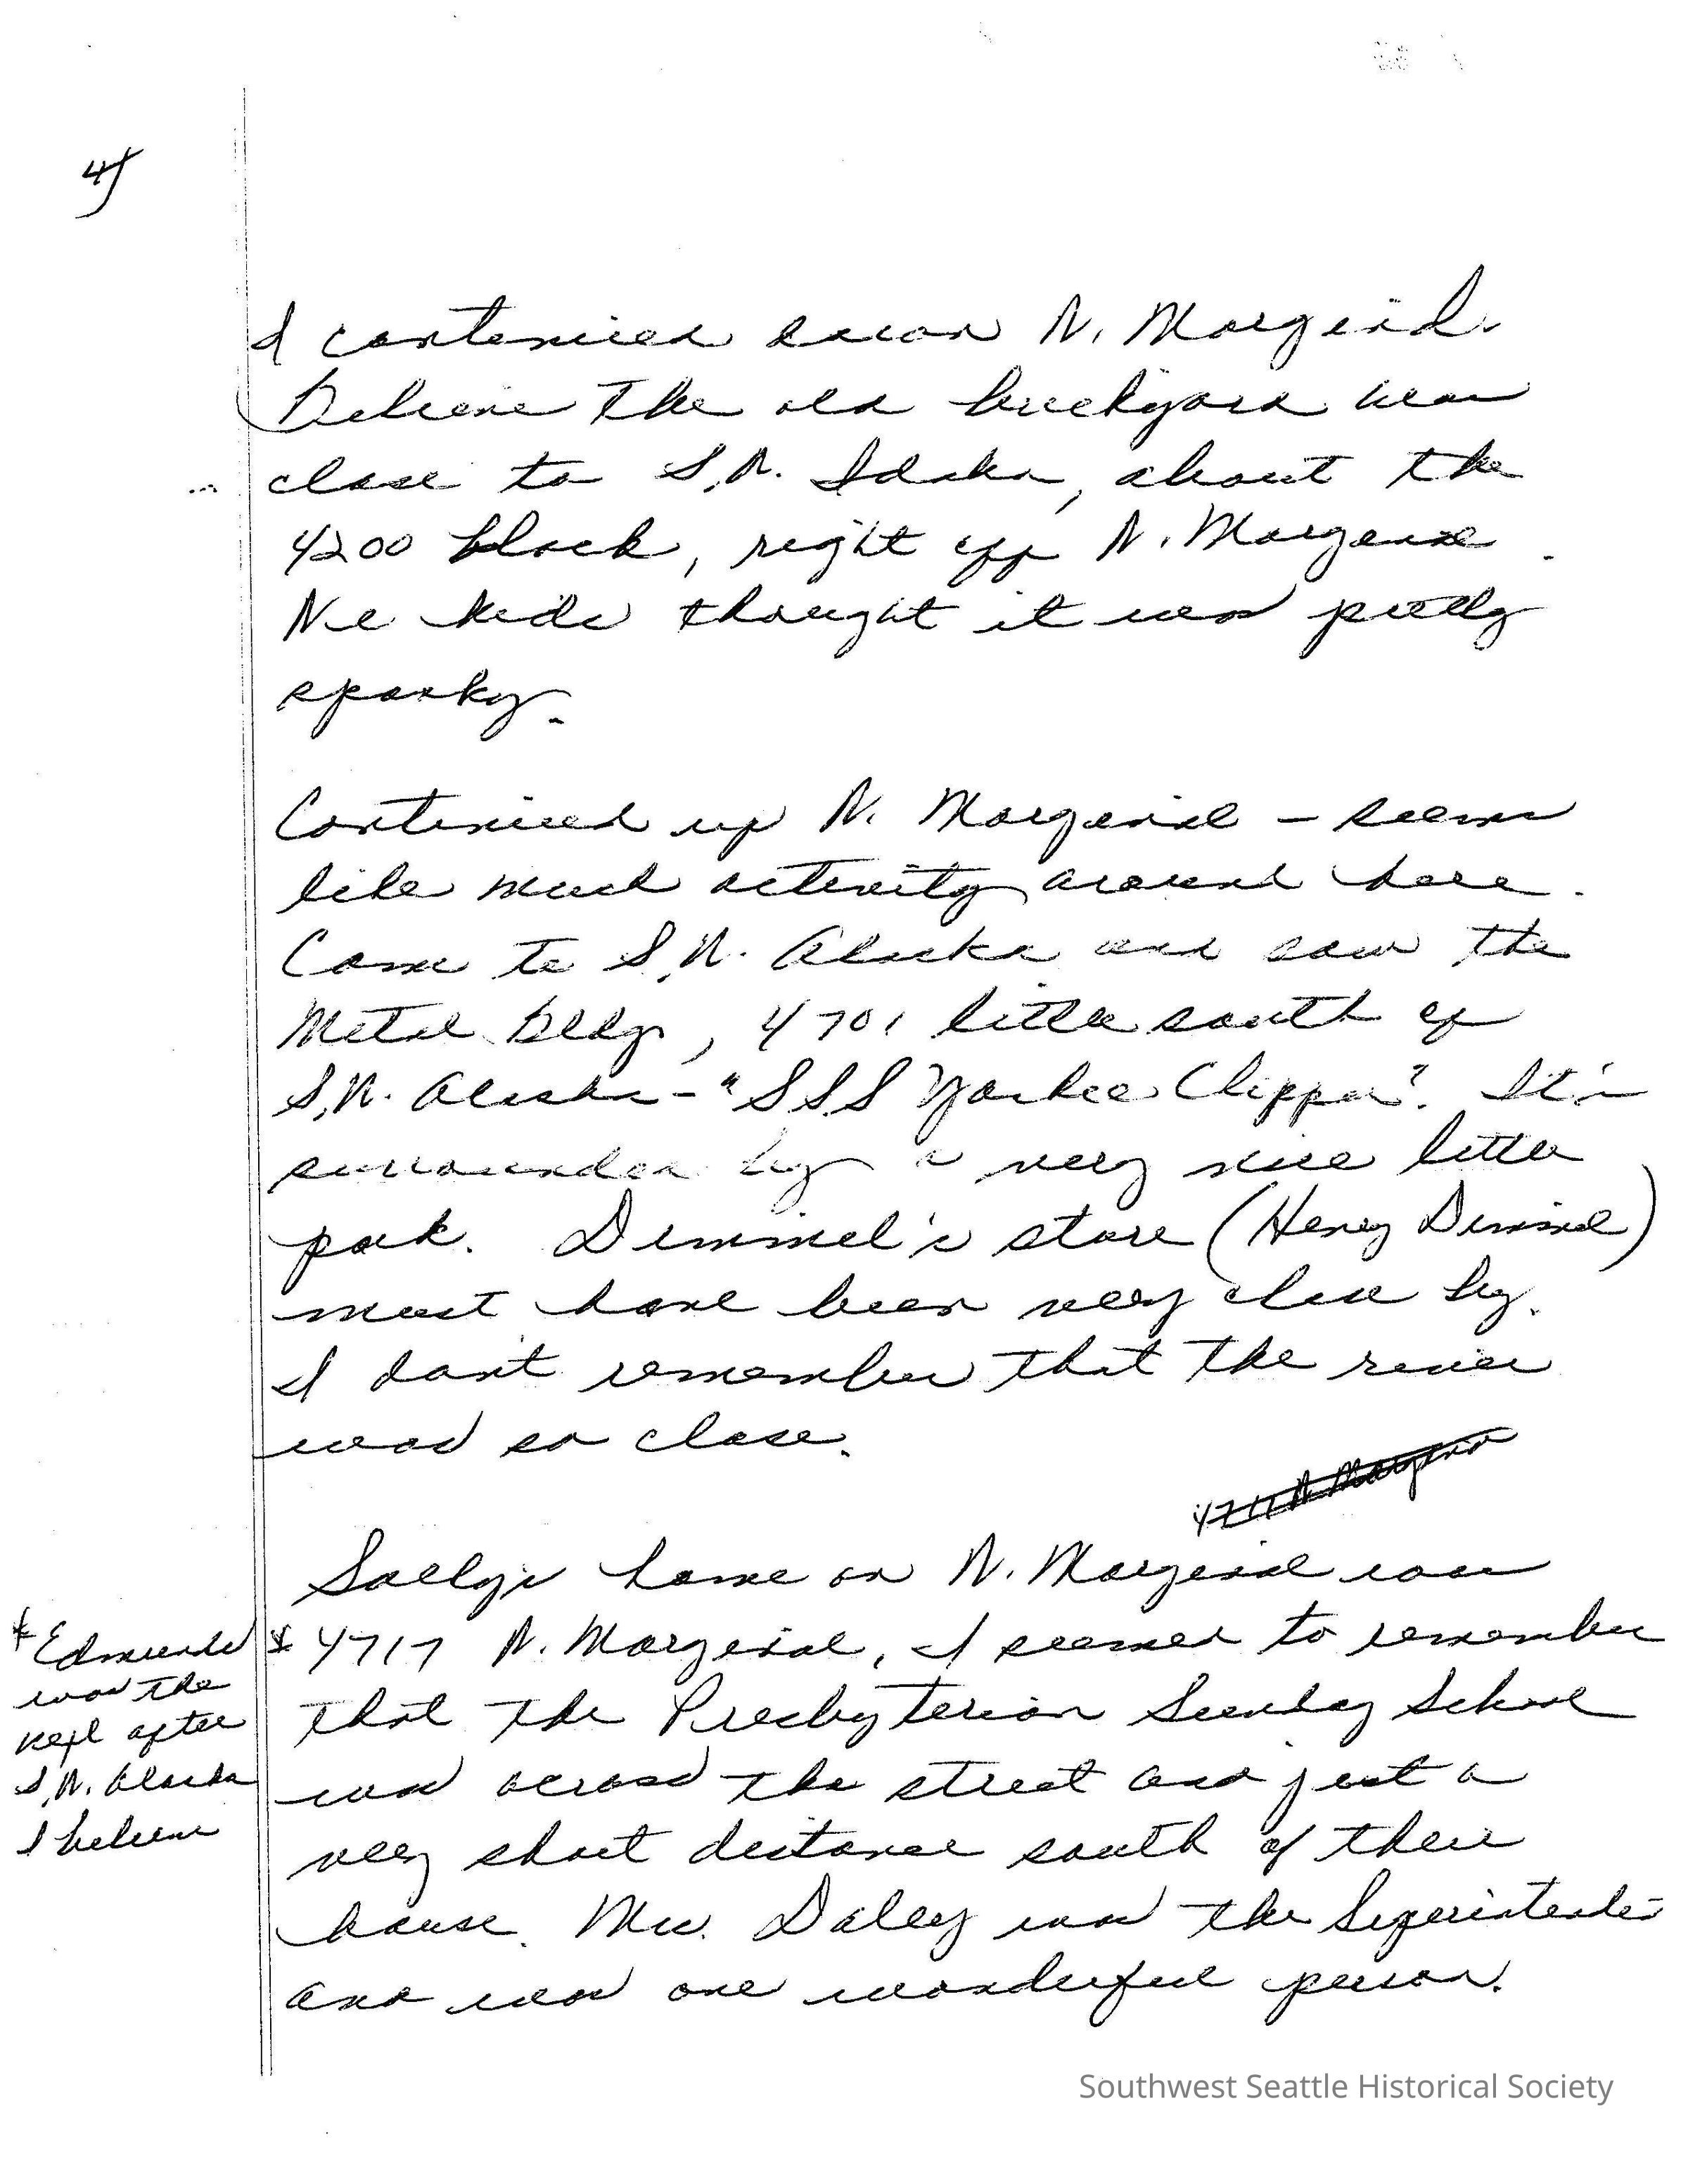 4)
I continued down W. Marginal.
Believe the old brickyard was
close to S.W. Idaho, about the
4200 block, right off W. Marginal.
We kids thought it was pretty
spooky.
Continued up W. Marginal – seems
like much activity around here.
Came to S.W. Alaska and saw the
Metal Bldg, 4701 little south of
S.W. Alaska – "SSS Yankee Clipper". It's
surrounded by a very nice little
park. Dimmel's store (Henry Dimmel)
must have been very close by.
I don't remember that the river
was so close.
4711 W. Margina
Sally's home on W. Marginal was
* 4717 W. Marginal, I seemed to remember
that the Presbyterian Sunday School
was across the street and just a
very short distance south of their
house. Mrs. Daley was the Superintendent
and was one wonderful person.
* Edmunds
was the
next after
S.W. Alaska
I believe
Southwest Seattle Historical Society